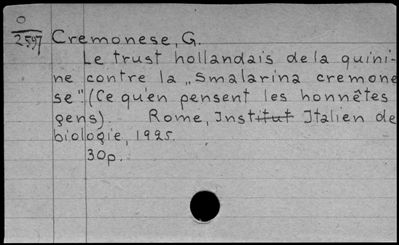 O
2597 Cremonese, G.
Le trust hollandais de la quini-
ne contre la „Smalarina cremone
se". (Ce qu'en pensent les honnêtes
gens) Rome, Institut Italien de
biologie, 1925.
30p.